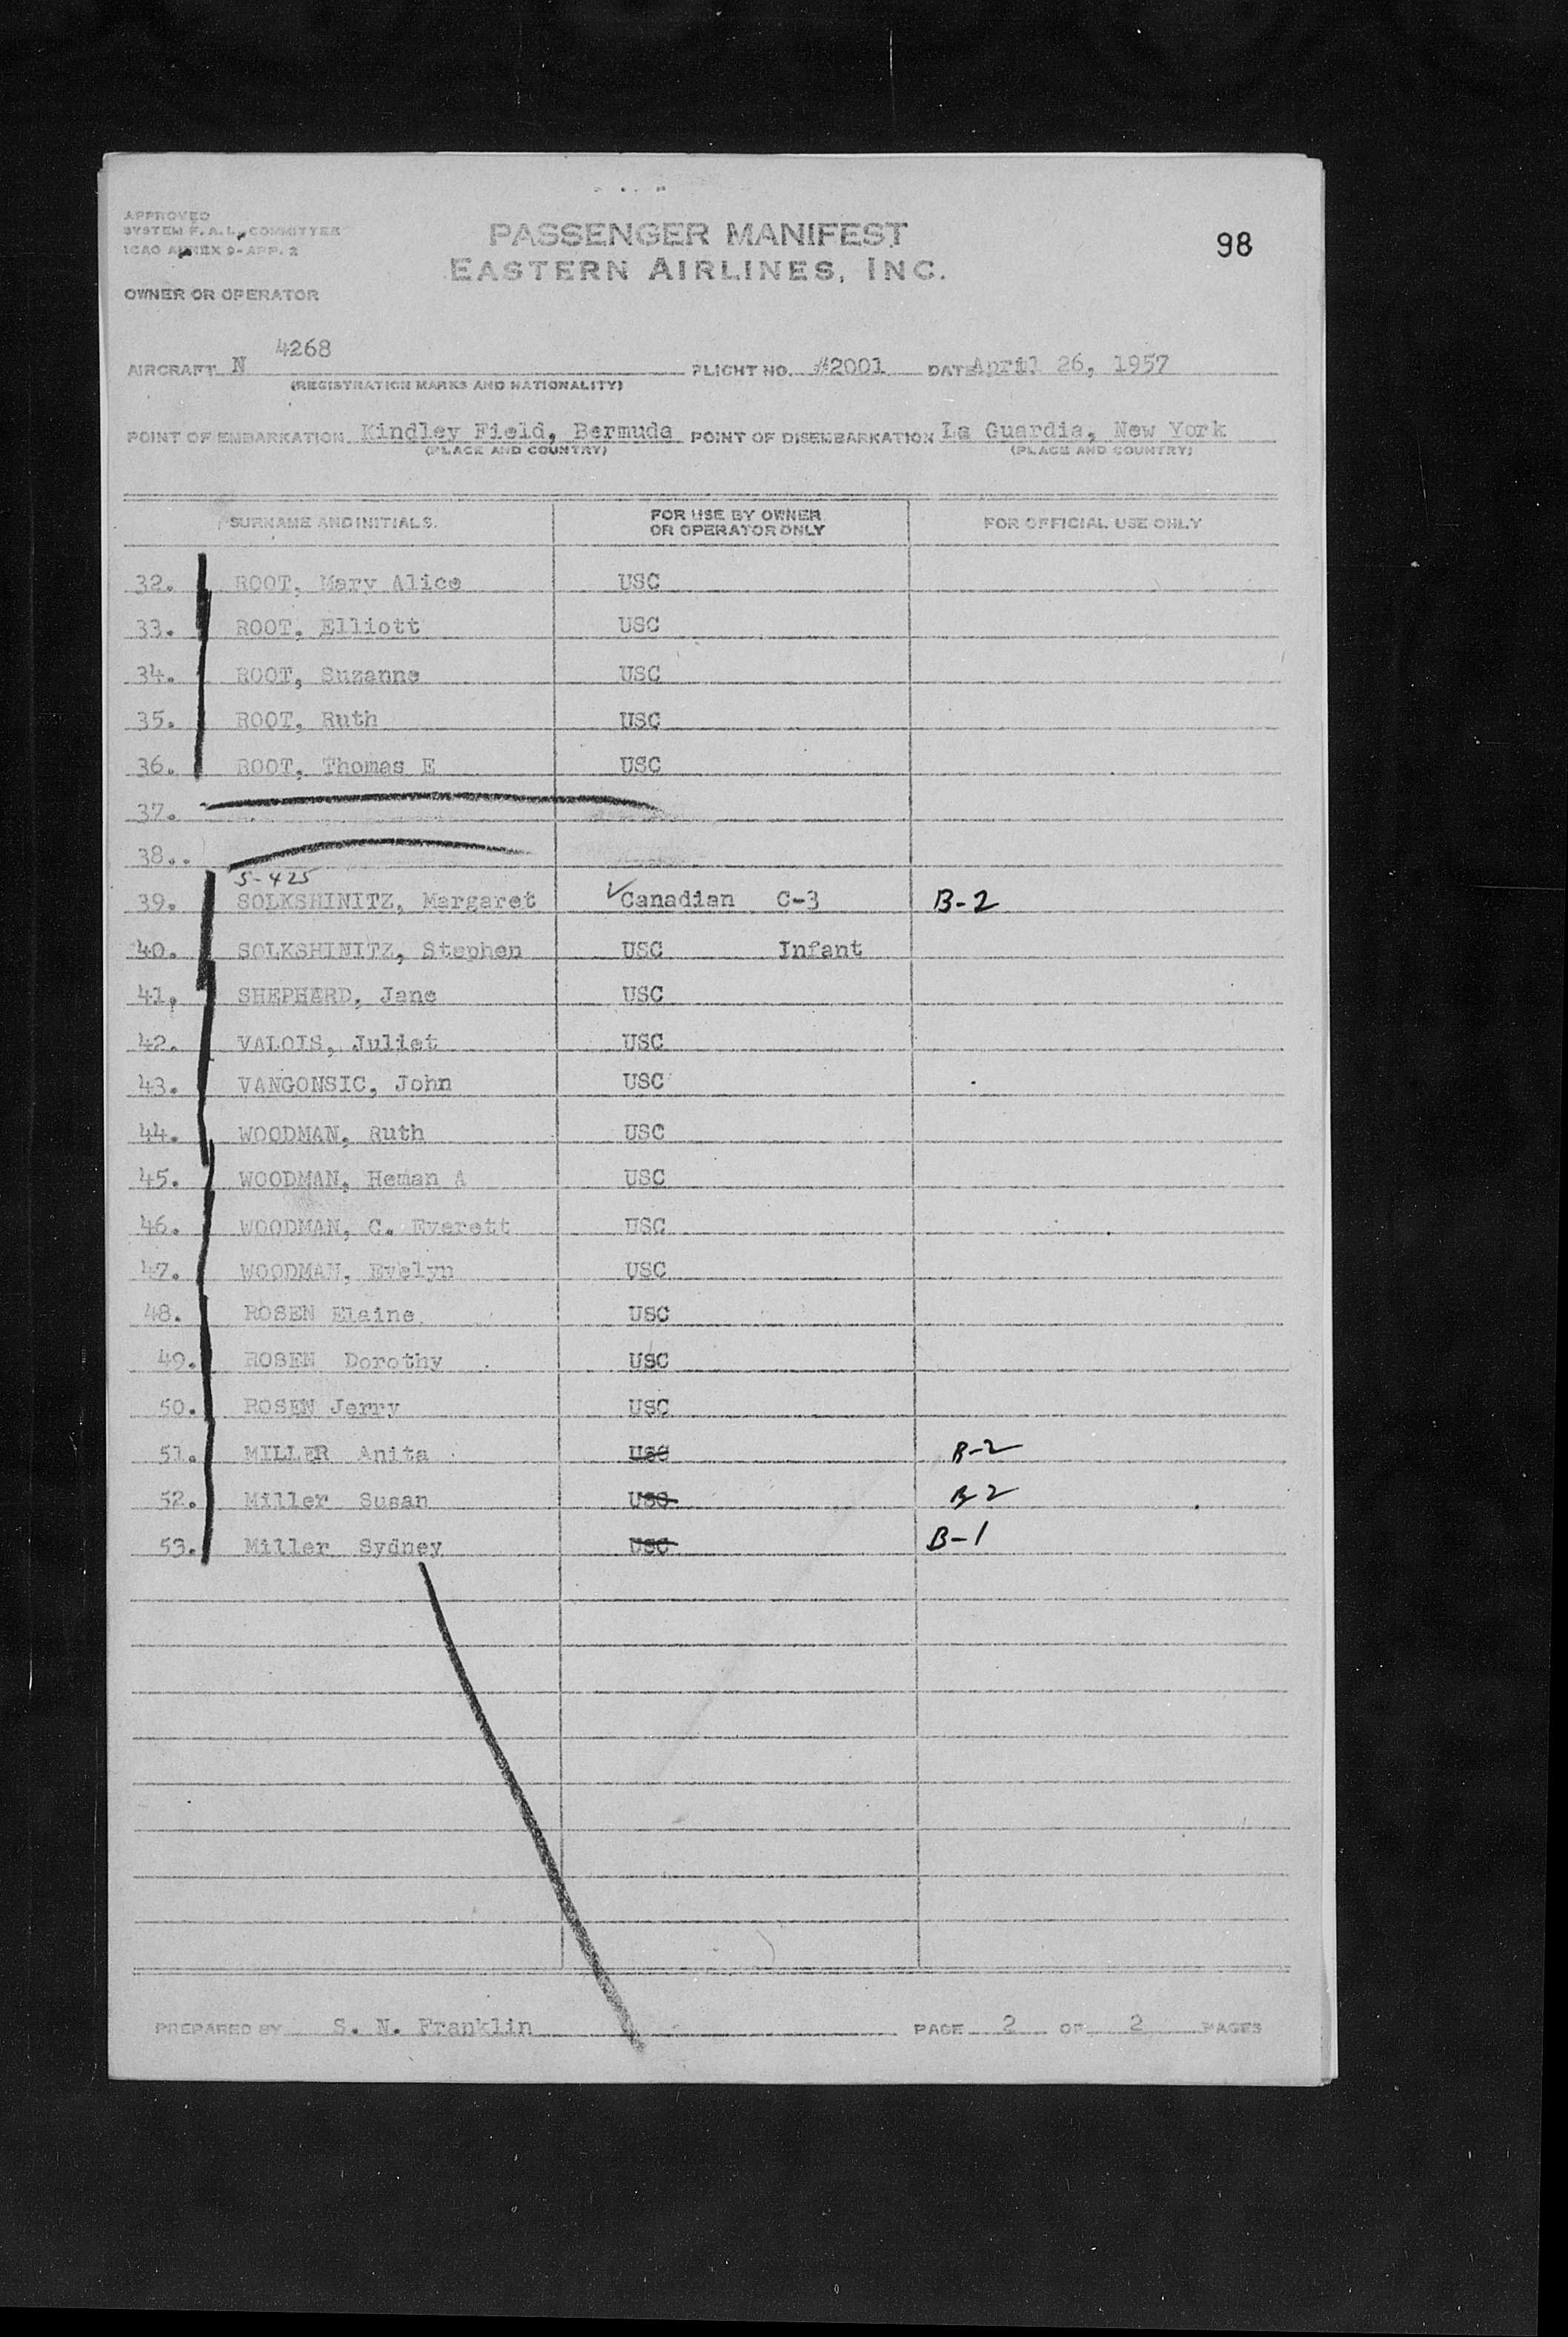 APPROVED
SYSTEM F. A. L. COMMITTEE
ICAO ANNEX 9- APP. 2
PASSENGER MANIFEST
98
EASTERN AIRLINES, INC.
OWNER OR OPERATOR
AIRCRAFT N 4268 FLIGHT NO. #2001 DATE April 26, 1957
(REGISTRATION MARKS AND NATIONALITY)
POINT OF EMBARKATION Kindley Field, Bermuda POINT OF DISEMBARKATION La Guardia, New York
(PLACE AND COUNTRY) (PLACE AND COUNTRY)
SURNAME AND INITIALS. FOR USE BY OWNER OR OPERATOR ONLY FOR OFFICIAL USE ONLY
32. ROOT, Mary Alice USC
33. ROOT, Elliott USC
34. ROOT, Suzanne USC
35. ROOT, Ruth USC
36. ROOT, Thomas E USC
37.
38..
S-425
39. SOLKSHINITZ, Margaret ✓Canadian C-3 B-2
40. SOLKSHINITZ, Stephen USC Infant
41. SHEPHARD, Jane USC
42. VALOIS, Juliet USC
43. VANGONSIC, John USC
44. WOODMAN, Ruth USC
45. WOODMAN, Heman A USC
46. WOODMAN, C. Everett USC
47. WOODMAN, Evelyn USC
48. ROSEN Elaine USC
49. ROSEN Dorothy USC
50. ROSEN Jerry USC
51. MILLER Anita USC B-2
52. Miller Susan USC B-2
53. Miller Sydney USC B-1
PREPARED BY S. N. Franklin PAGE 2 OF 2 PAGES